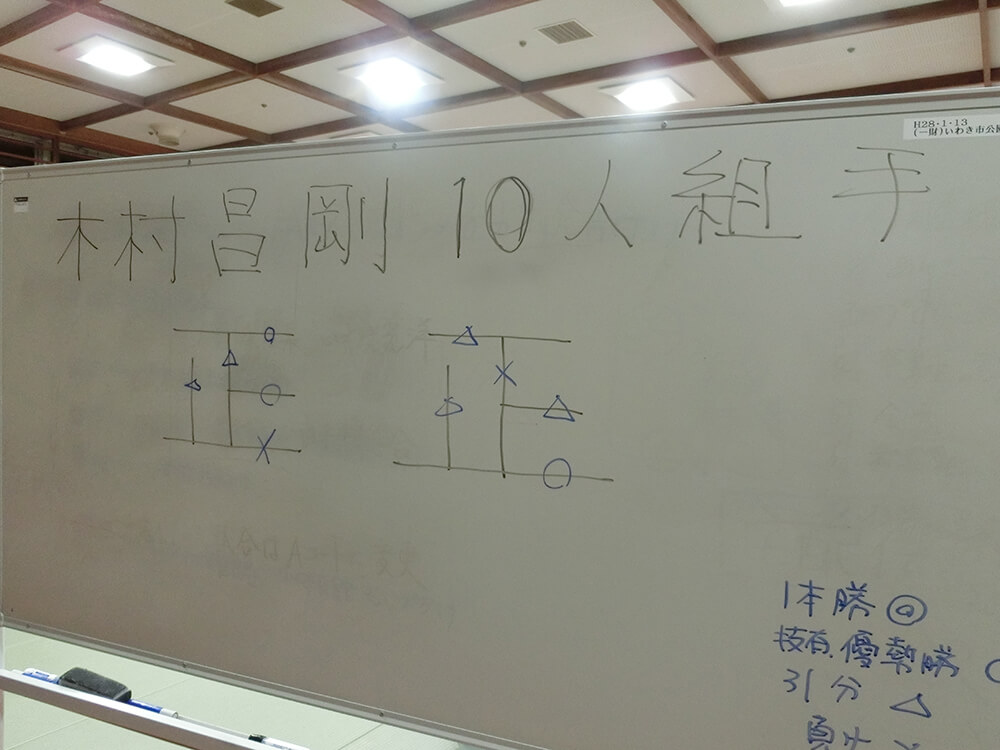 H28・1・13
(一財)いわき市公園
木村昌剛 10人組手
1本勝 ◎
技有.優勢勝 ○
引分 △
負け ×